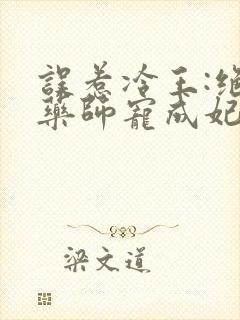 誤惹冷王:絕
藥師寵成妃
梁文道